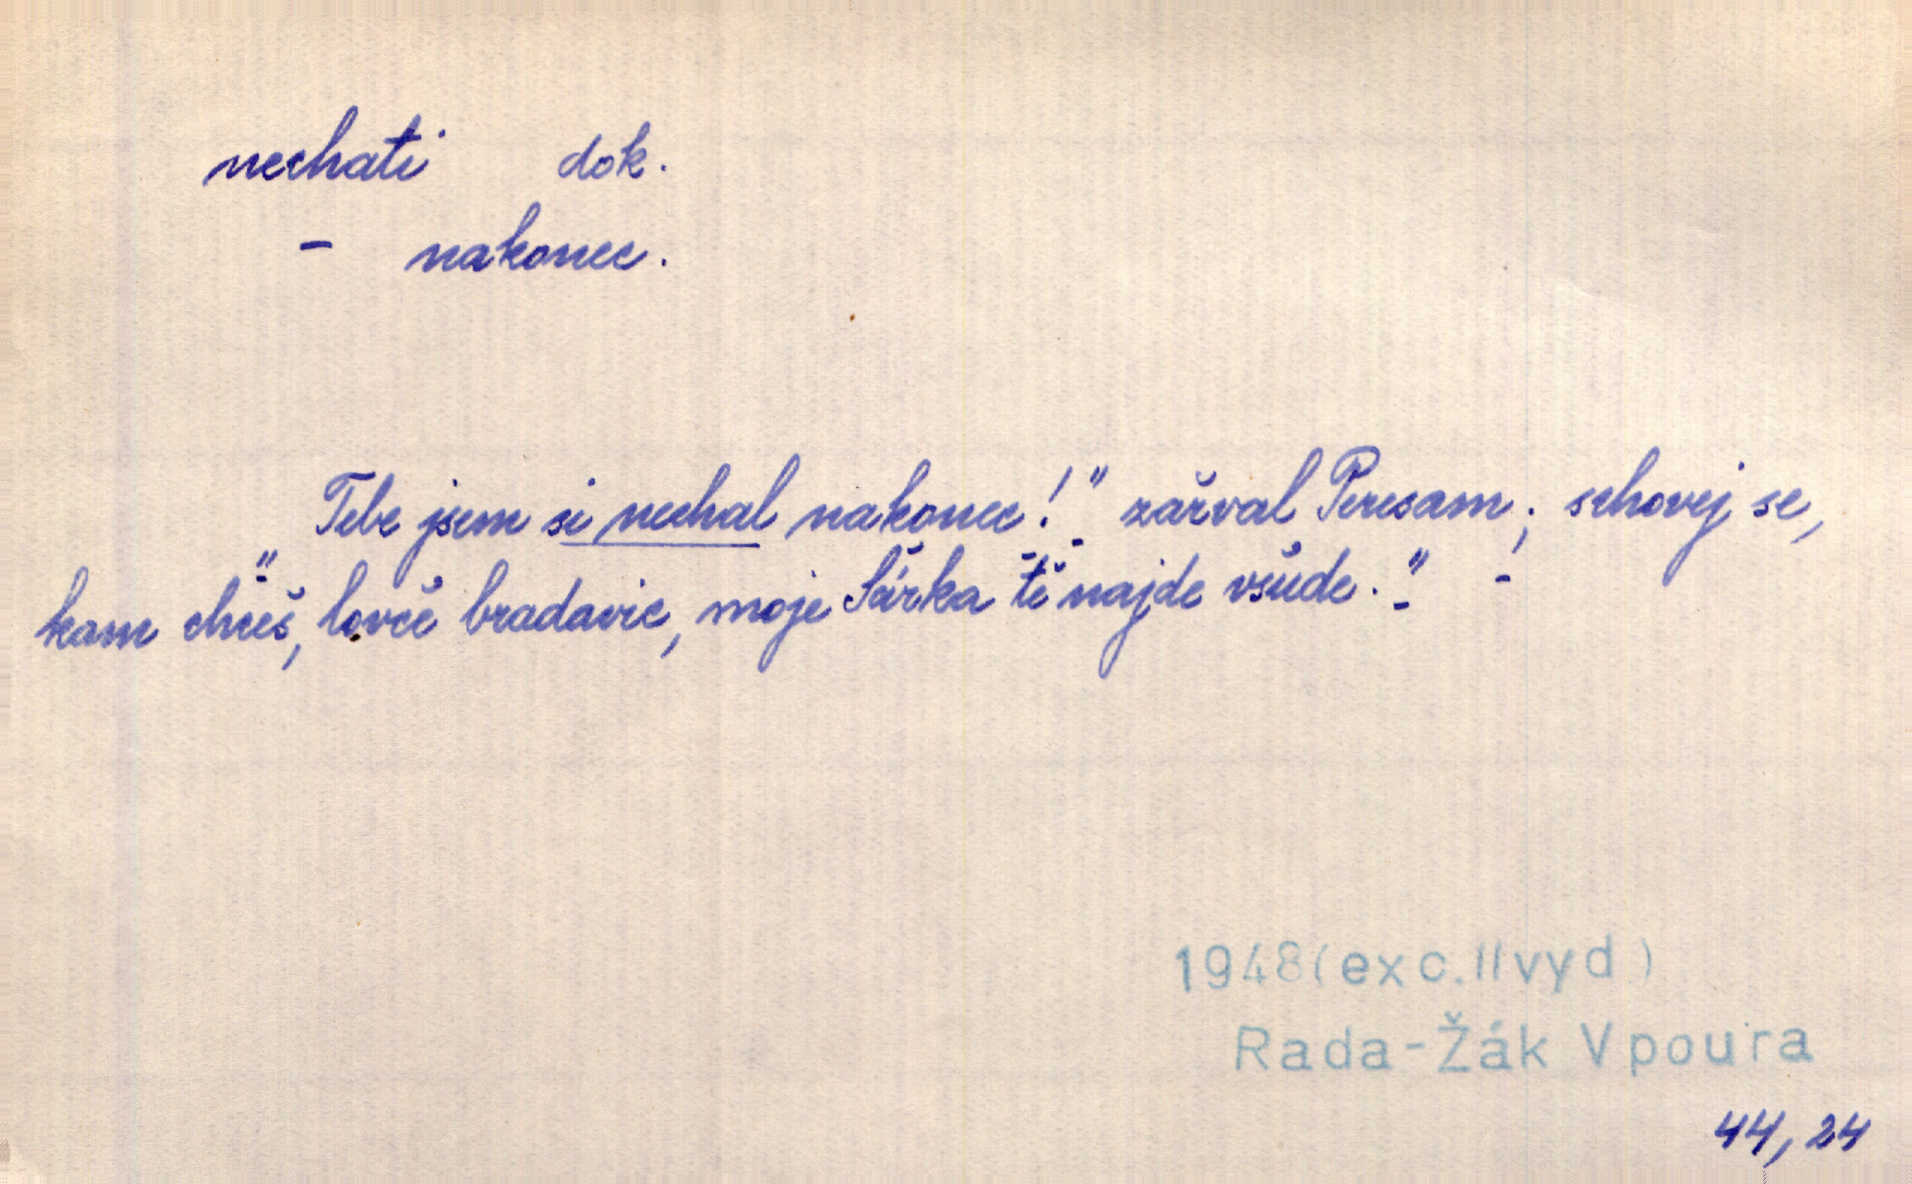 nechati dok.
- nakonec.
„Tebe jsem si nechal nakonec!" zařval Peresam; schovej se,
kam chceš, lovče bradavic, moje Šárka tě najde všude."
1948(exc.IIvyd)
Rada-Žák Vpoura
44, 24